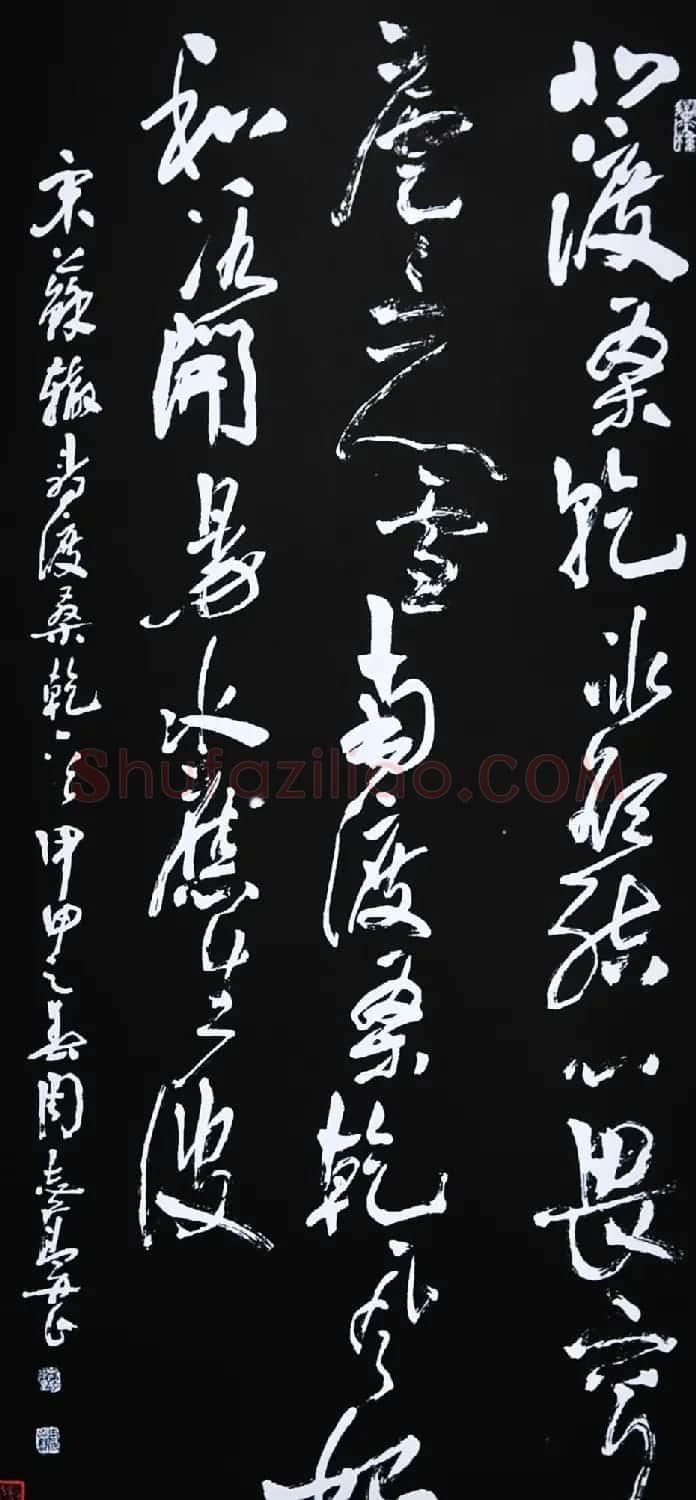 北渡桑乾冰欲結心畏穹
廬三尺雪南渡桑乾風始
和冰開易水應生波
宋蘇轍為渡桑乾 甲申之春周
Shufaziliao.COM